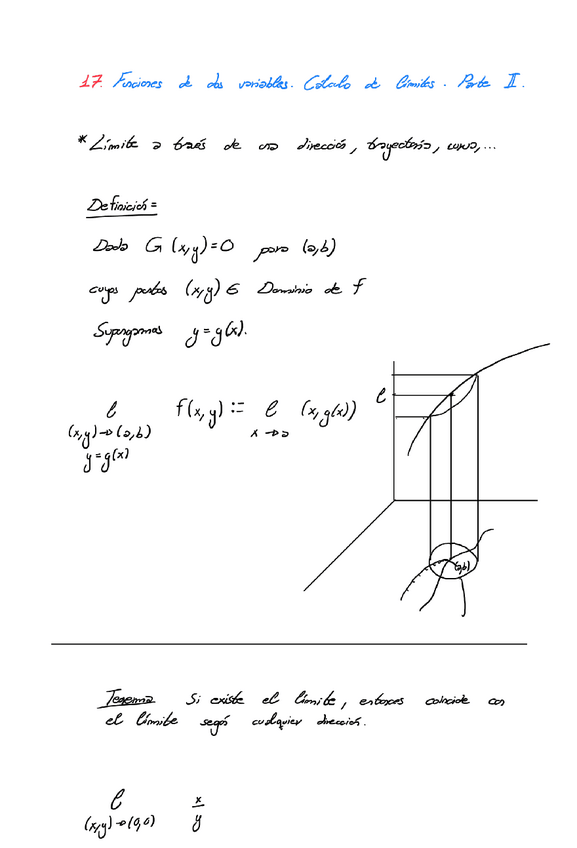 17. Funciones de dos variables. Cálculo de límites. Parte II.
* Límite a través de una dirección, trayectoria, curva,...
Definición=
Dada G(x,y)=0 para (a,b)
cuyos puntos (x,y) ∈ Dominio de f
Supongamos y=g(x).
ℓ f(x,y) := ℓ (x,g(x))
(x,y)→(a,b) x→a
y=g(x)
ℓ
(a,b)
Teorema Si existe el límite, entonces coincide con
el límite según cualquier dirección.
ℓ x/y
(x,y)→(0,0)